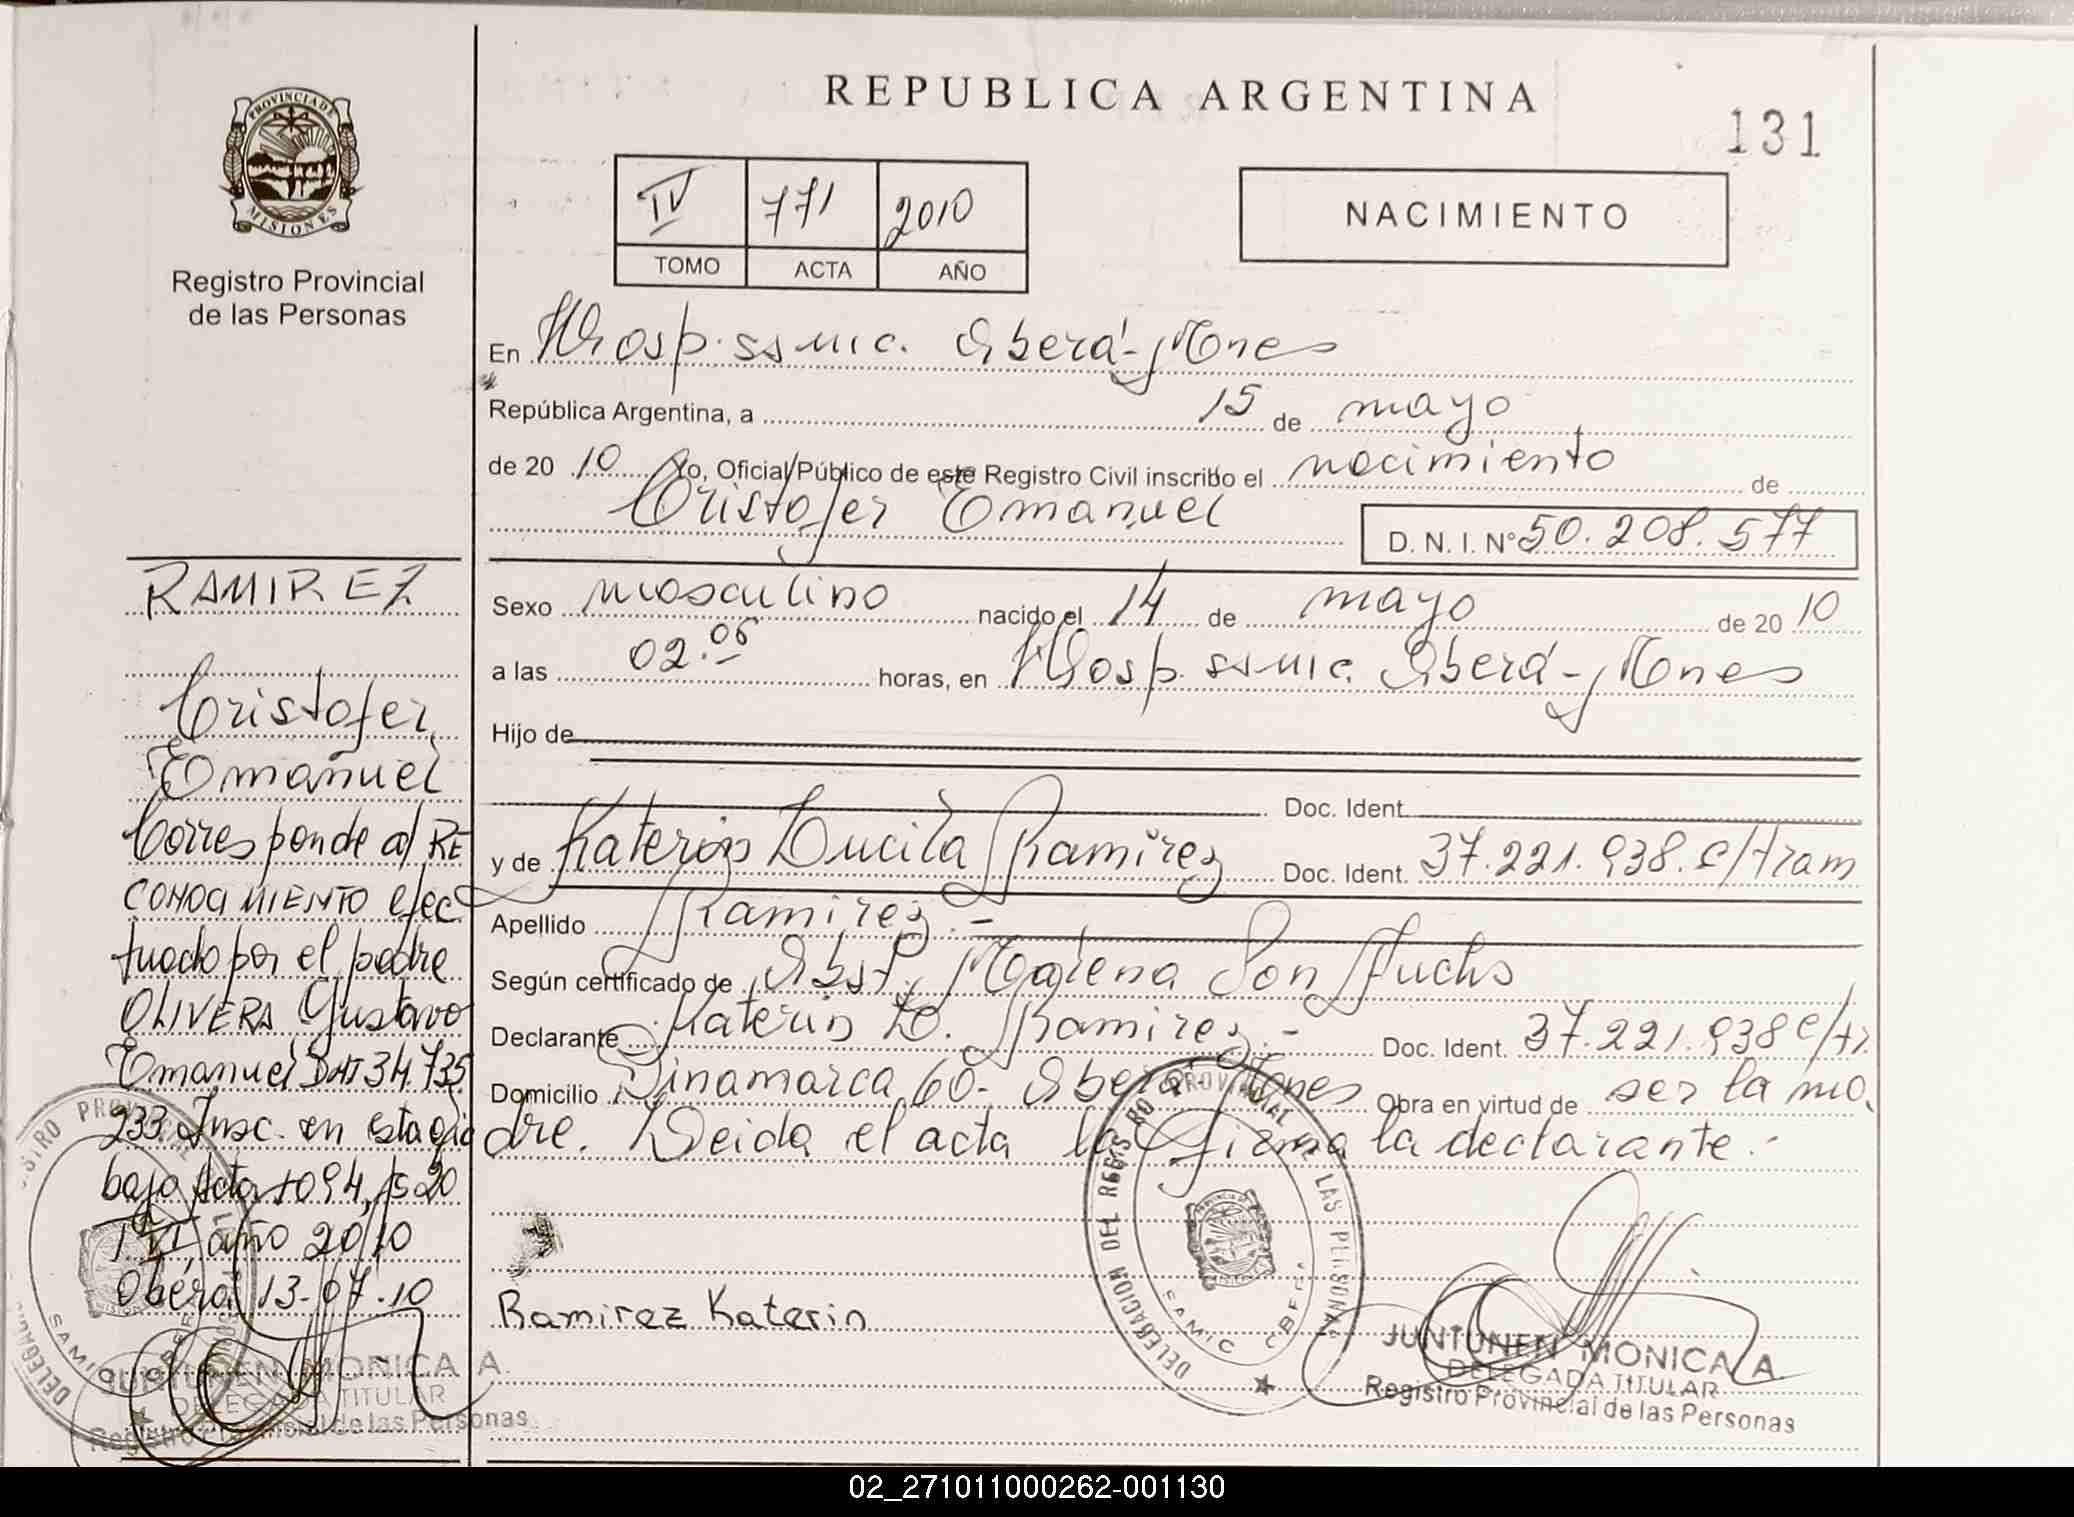 REPUBLICA ARGENTINA
131
PROVINCIA DE
MISIONES
Registro Provincial
de las Personas
IV 771 2010
TOMO ACTA AÑO
NACIMIENTO
En Hosp. ssmic. Oberá-Mnes
República Argentina, a 15 de mayo
de 20 10 Yo, Oficial Público de este Registro Civil inscribo el nacimiento de
Cristofer Emanuel
D. N. I. Nº 50.208.577
Sexo masculino nacido el 14 de mayo de 20 10
a las 02.06 horas, en Hosp. ssmic. Oberá-Mnes
Hijo de
Doc. Ident.
y de Katerin Lucila Ramirez Doc. Ident. 37.221.938.e/tram
Apellido Ramirez.-
Según certificado de Obst. Malena Son Fuchs
Declarante Katerin L. Ramirez.- Doc. Ident. 37.221.938 e/tr.
Domicilio Dinamarca 60- Oberá-Mnes Obra en virtud de ser la ma
dre. Leida el acta la firma la declarante.-
Ramirez Katerin
DELEGACION DEL REGISTRO PROVINCIAL DE LAS PERSONAS
SAMIC OBERA
JUNTUNEN MONICA A
DELEGADA TITULAR
Registro Provincial de las Personas
RAMIREZ
Cristofer
Emanuel
Corresponde al RE
CONOCIMIENTO efec
tuado por el padre
OLIVERA Gustavo
Emanuel DNI 34.735
233. Insc. en esta ofic
bajo Acta 1094, fs 20
T VI, año 2010
Oberá 13-07-10
JUNTUNEN MONICA A.
DELEGADA TITULAR
Registro Provincial de las Personas
02_271011000262-001130